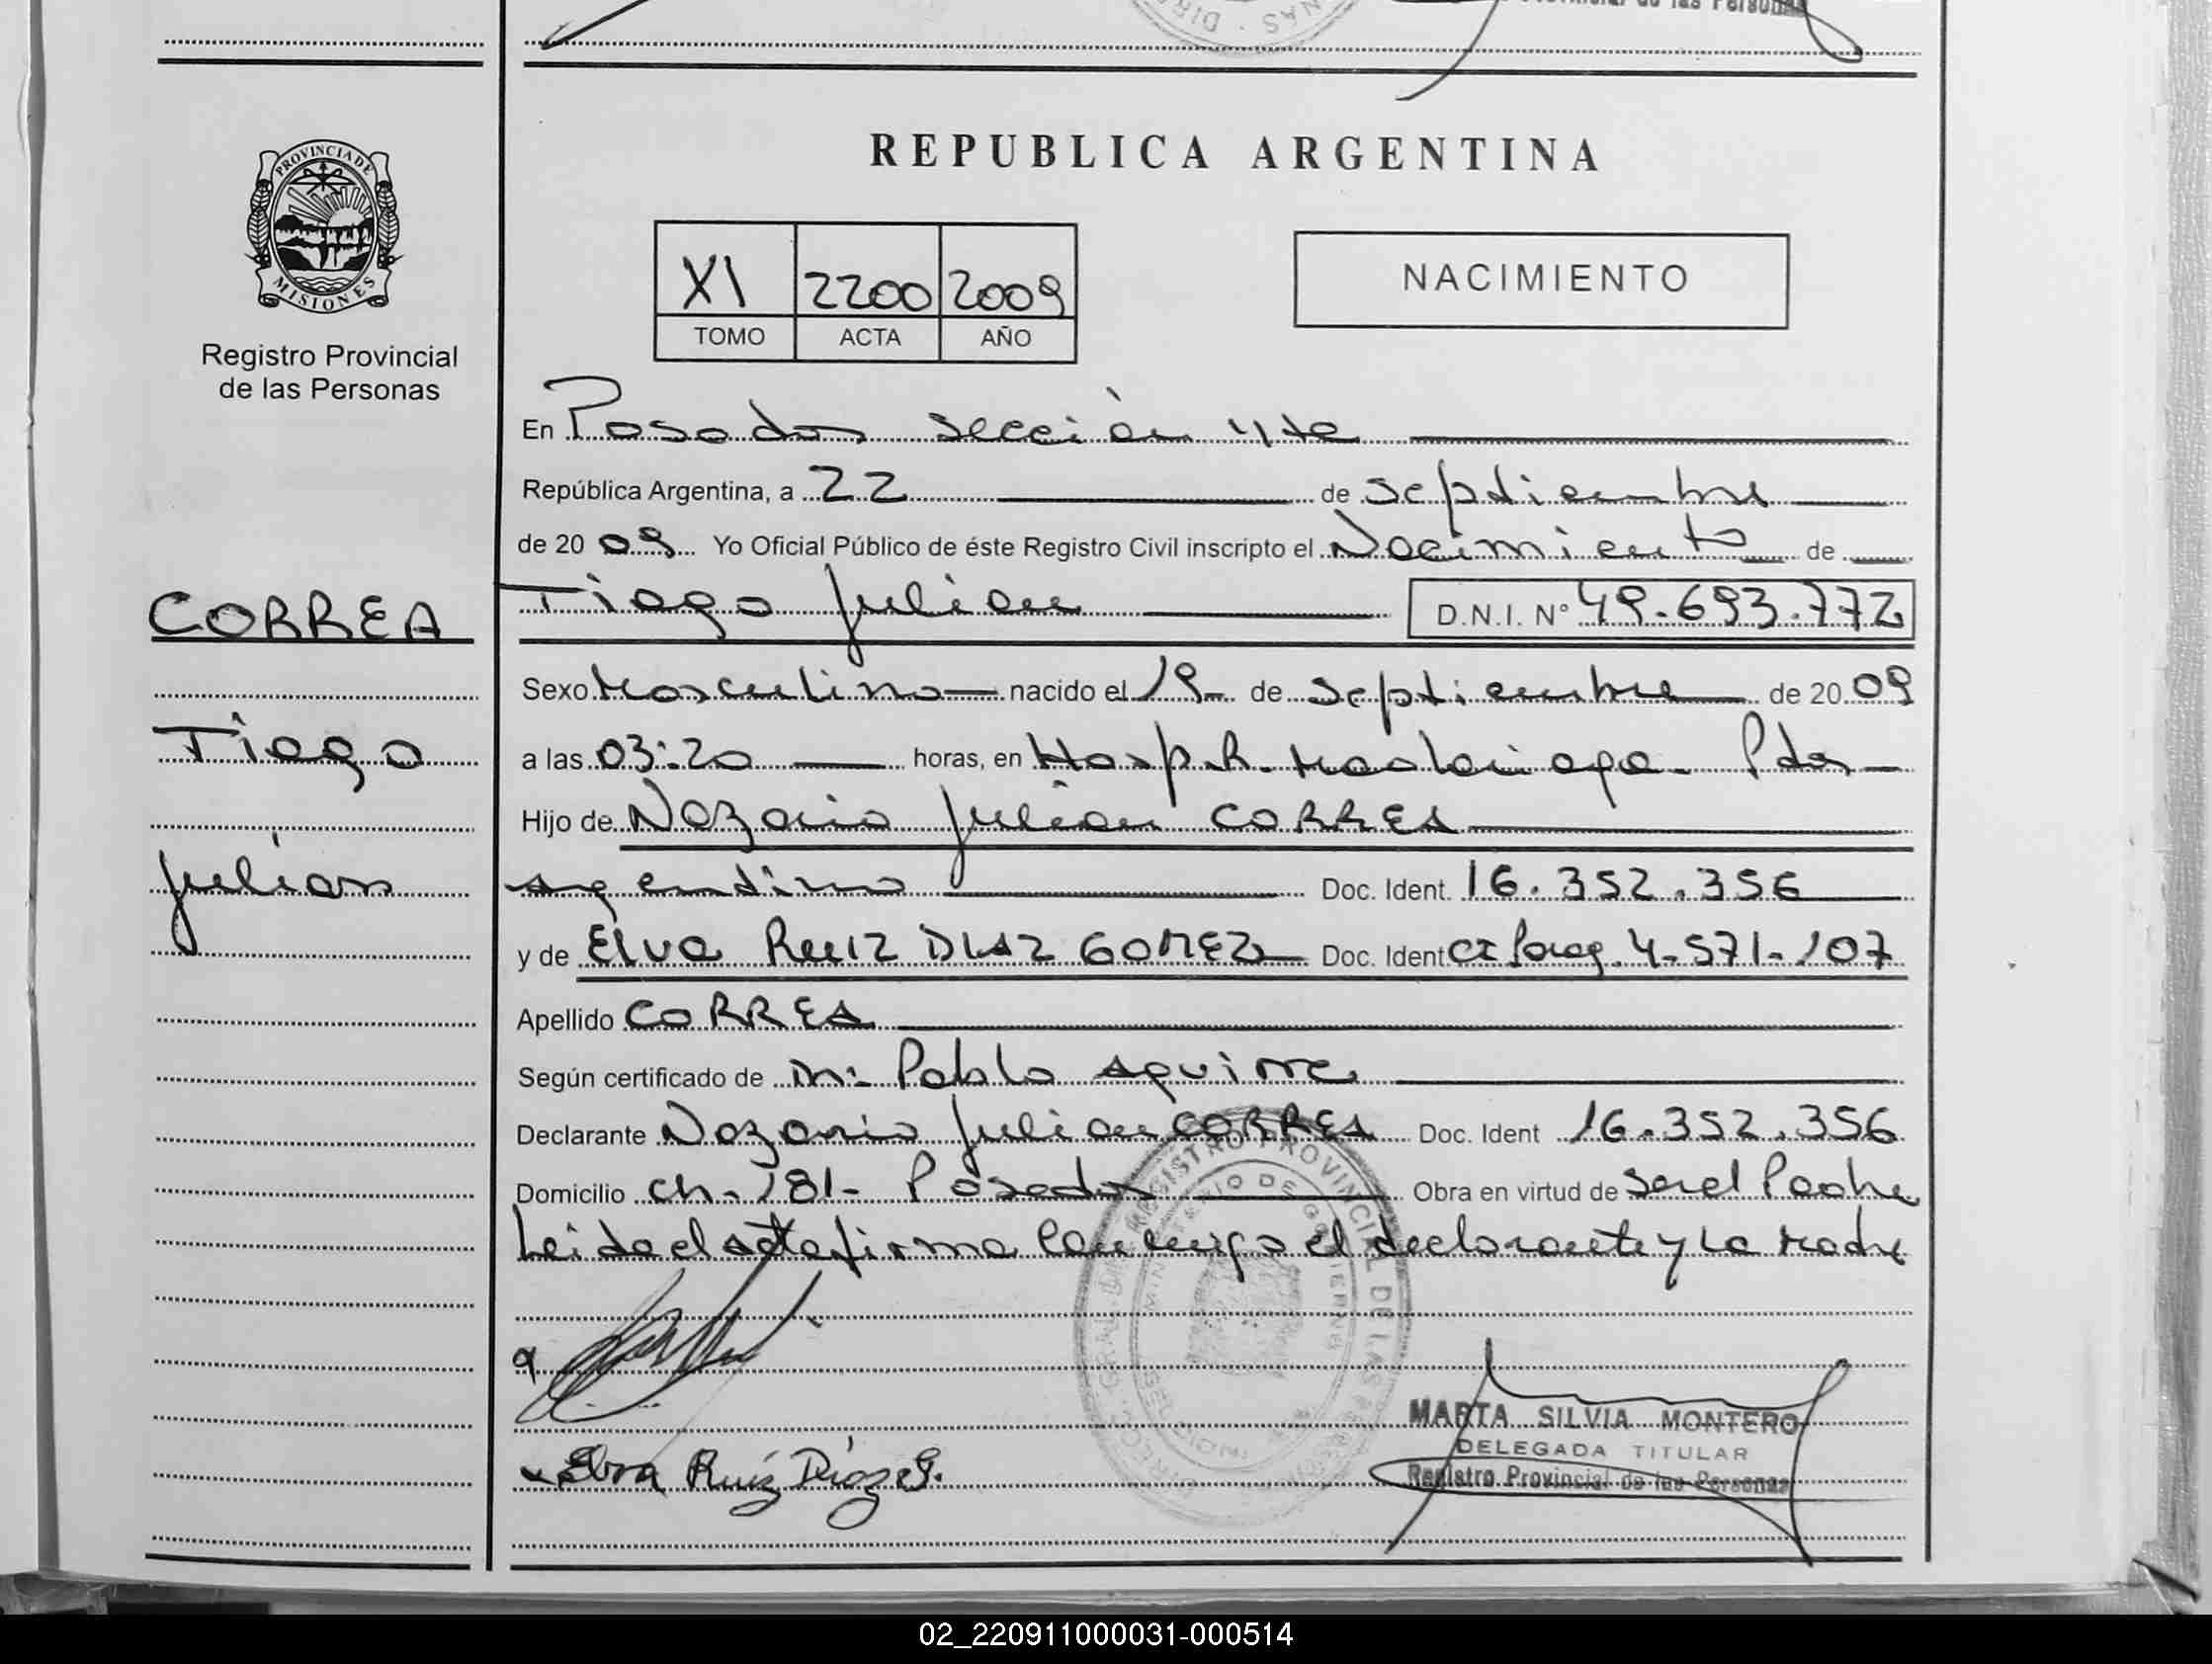 Provincial de las Personas
PROVINCIA DE
MISIONES
Registro Provincial
de las Personas
CORREA
Tiago
Julián
REPUBLICA ARGENTINA
XI 2200 2009
TOMO ACTA AÑO
NACIMIENTO
En Posadas sección 4ta
República Argentina, a 22 de septiembre
de 2009 Yo Oficial Público de éste Registro Civil inscripto el Nacimiento de
Tiago Julian D.N.I. Nº 49.693.772
Sexo Masculino nacido el 19 de septiembre de 2009
a las 03:20 horas, en Hosp. R. Madariaga - Pdas
Hijo de Nazario Julian CORREA
argentino Doc. Ident. 16.352.356
y de Elva RUIZ DIAZ GOMEZ Doc. Ident CI Parag. 4-571-107
Apellido CORREA
Según certificado de Dr. Pablo Aguirre
Declarante Nazario Julian CORREA Doc. Ident 16.352.356
Domicilio ch. 181 - Posadas Obra en virtud de ser el Padre
Leida el acta firma conmigo el declarante y La Madre
Elva Ruíz Díaz G.
MARTA SILVIA MONTERO
DELEGADA TITULAR
Registro Provincial de las Personas
02_220911000031-000514